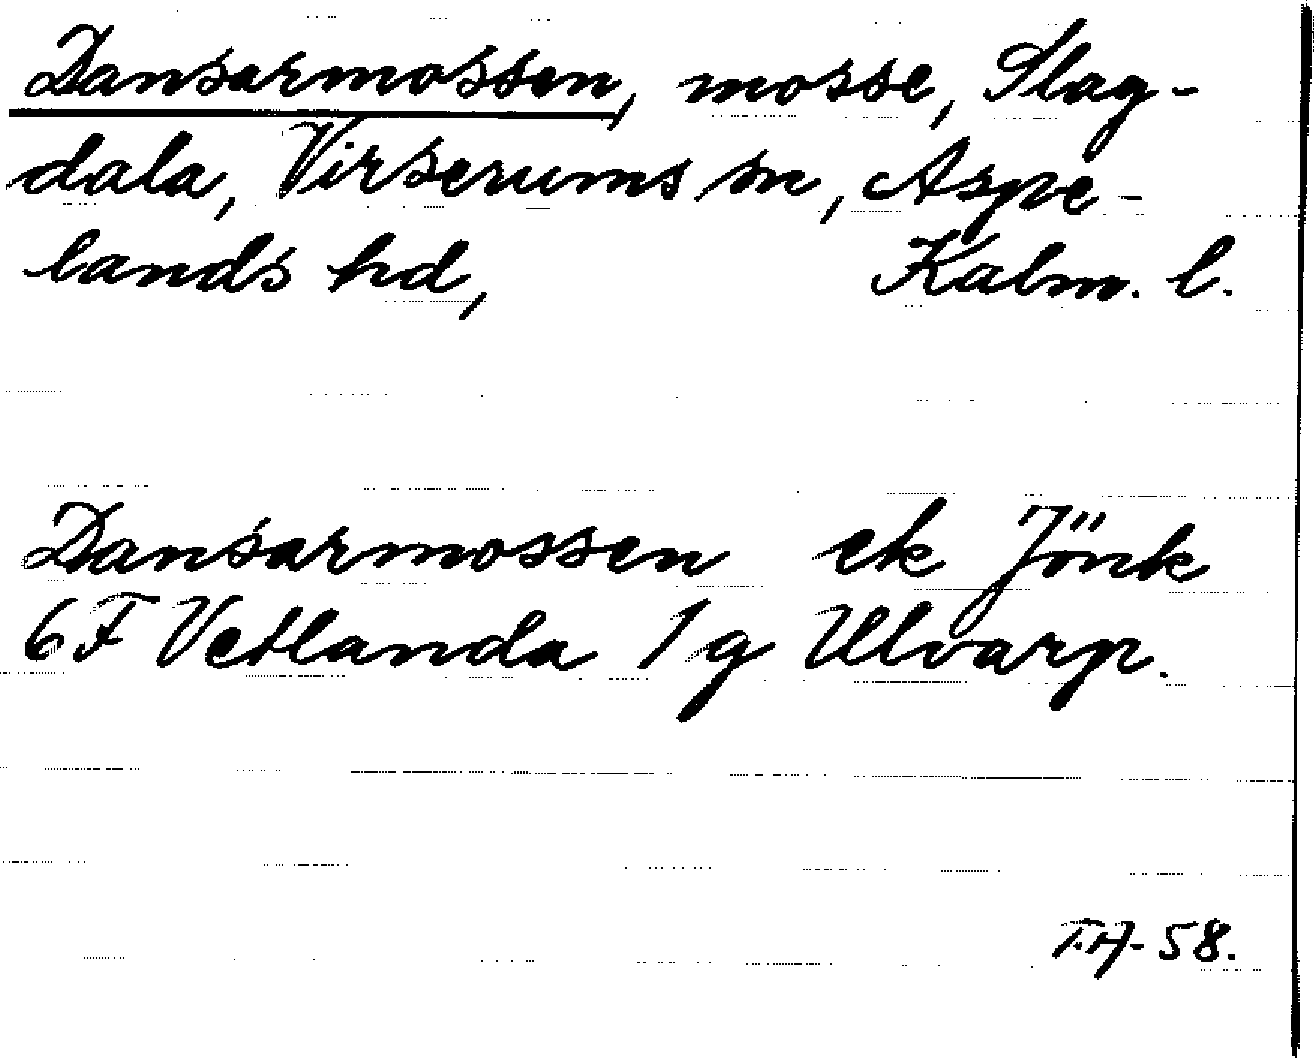 Dansarmossen, mosse, Slag-
dala, Virserums sn, Aspe-
lands hd, Kalm. l.
Dansarmossen ek Jönk
6F Vetlanda 1g Ulvarp.
58.